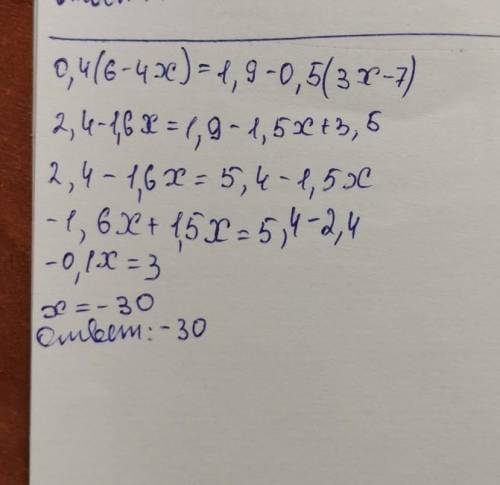 0,4(6-4x)=1,9-0,5(3x-7)
2,4-1,6x=1,9-1,5x+3,5
2,4-1,6x=5,4-1,5x
-1,6x+1,5x=5,4-2,4
-0,1x=3
x=-30
Ответ:-30